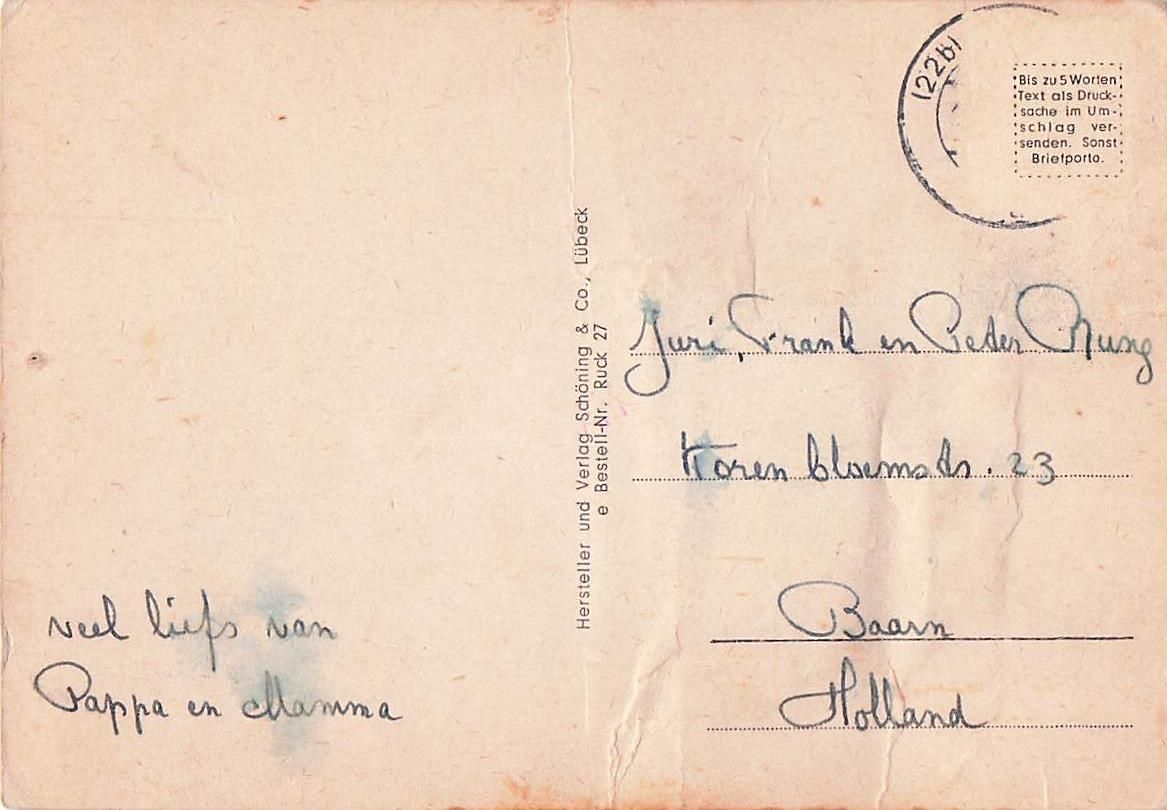 Bis zu 5 Worten
Text als Druck-
sache im Um-
schlag ver-
senden. Sonst
Briefporto.
Hersteller und Verlag Schöning & Co., Lübeck
e Bestell-Nr. Ruck 27
Juri, Frank en Peter
Korenbloemstr. 23
Baarn
Holland
veel liefs van
Pappa en Mamma